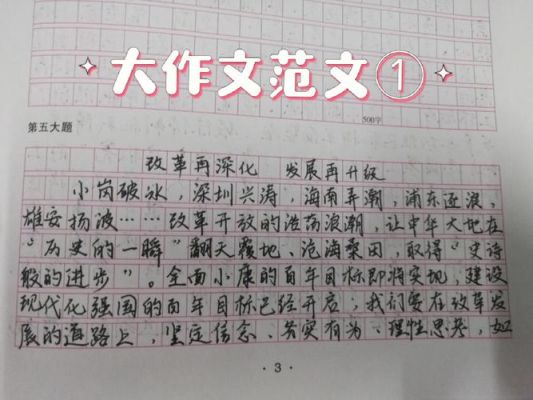 大作文范文①
500字
第五大题
改革再深化 发展再升级
小岗破冰，深圳兴涛，海南弄潮，浦东逐浪，
雄安扬波……改革开放的浩荡浪潮，让中华大地在
“历史的一瞬”翻天覆地、沧海桑田，取得“史诗
般的进步”。全面小康的百年目标即将实现，建设
现代化强国的百年目标已经开启；我们要在改革发
展的道路上，坚定信念、务实有为、理性思考，如
·3·